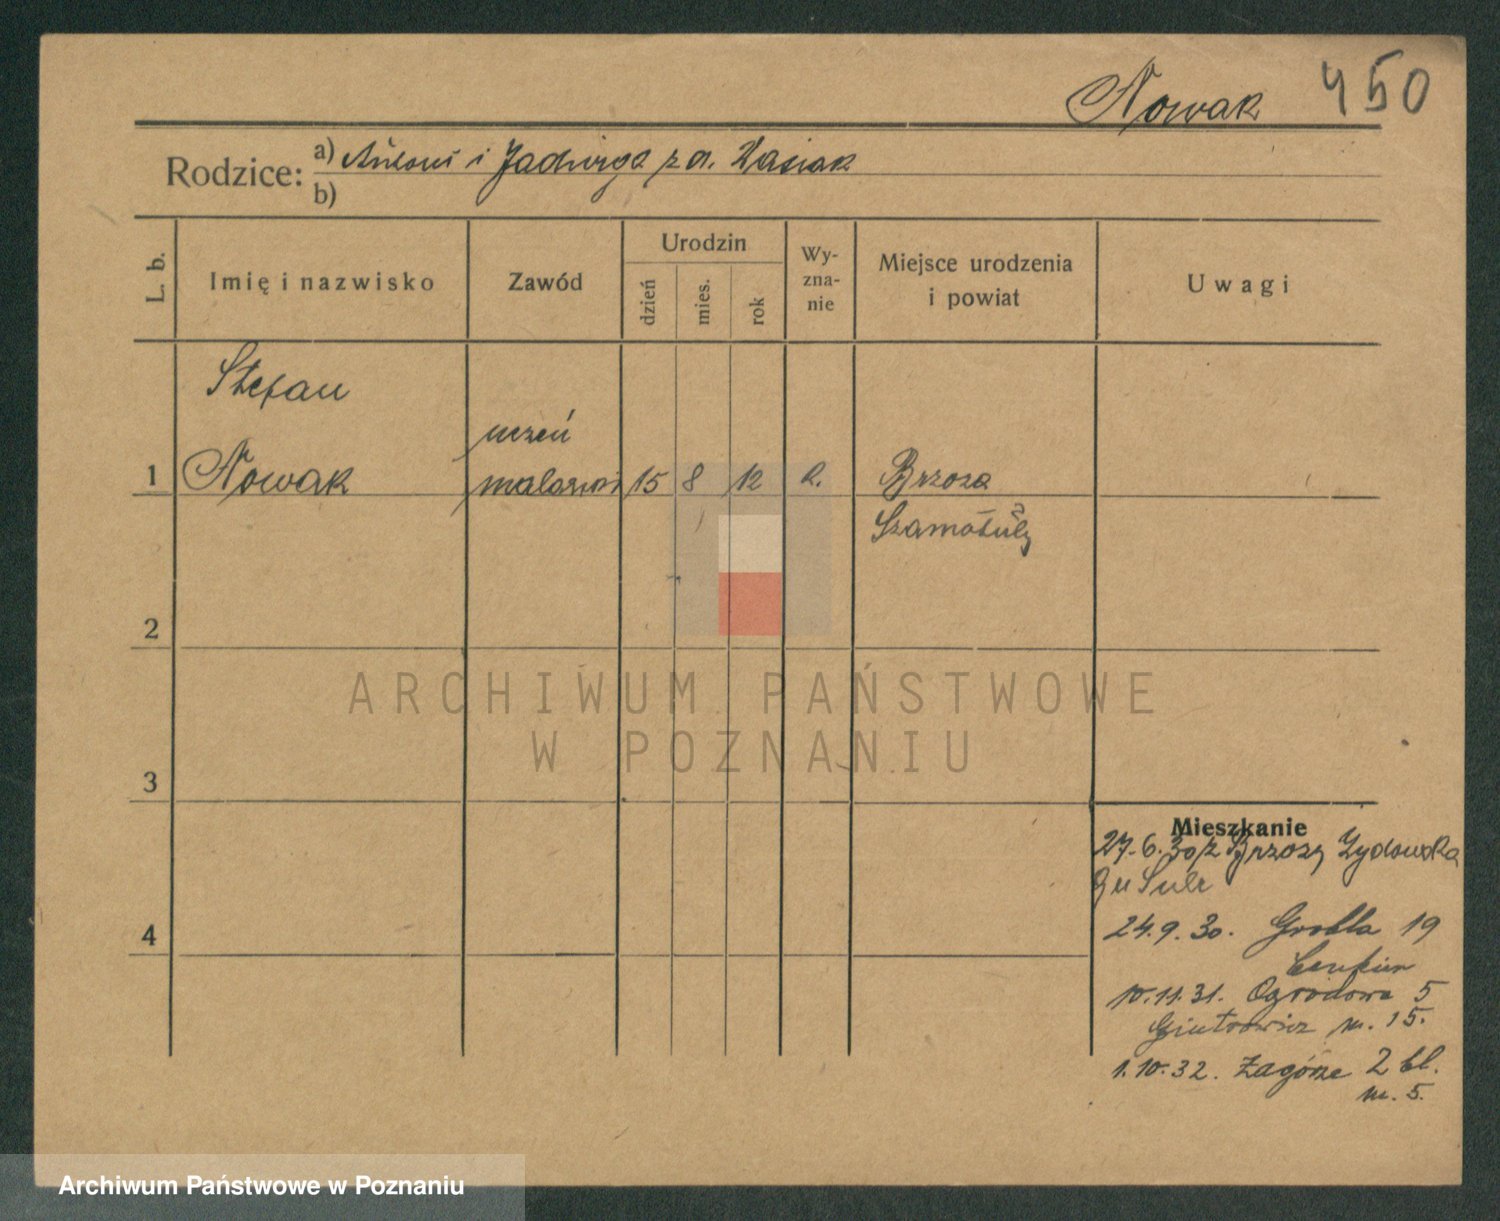 Nowak 450
Rodzice: a) Antoni i Jadwiga z d. Kasiak
b)
L. b.
Imię i nazwisko
Zawód
Urodzin
dzień
mies.
rok
Wy-
zna-
nie
Miejsce urodzenia
i powiat
Uwagi
Stefan
uczeń
1 Nowak malarski 15 8 12 k. Brzoza
Szamotuły
2
ARCHIWUM PAŃSTWOWE
W POZNANIU
3
Mieszkanie
27.6.30 z Brzozy Żydowska
24.9.30. Grobla 19
10.11.31. Ogrodowa 5
m. 15.
4
1.10.32. Zagórze 2 bl.
m. 5.
Archiwum Państwowe w Poznaniu